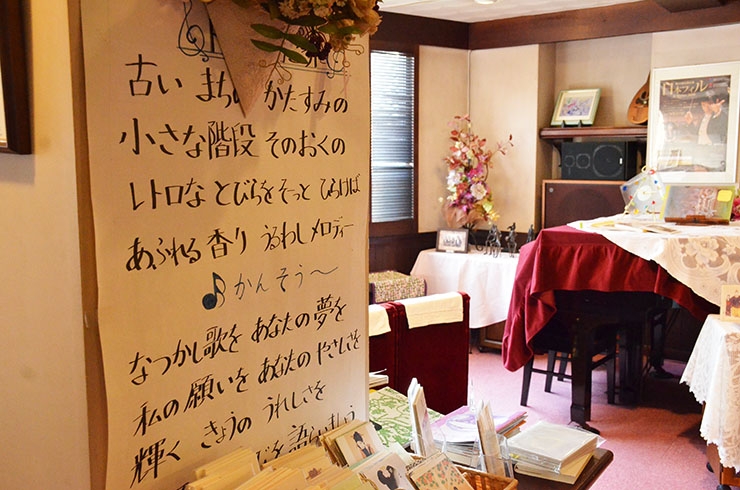 古い まちの かたすみの
小さな階段 そのおくの
レトロな とびらを そっと ひらけば
あふれる 香り うるわし メロディー
♪かんそう〜
なつかし歌を あなたの夢を
私の願いを あなたの やさしさを
輝く きょうの うれしさを
びを語らいましょう
日本フィル